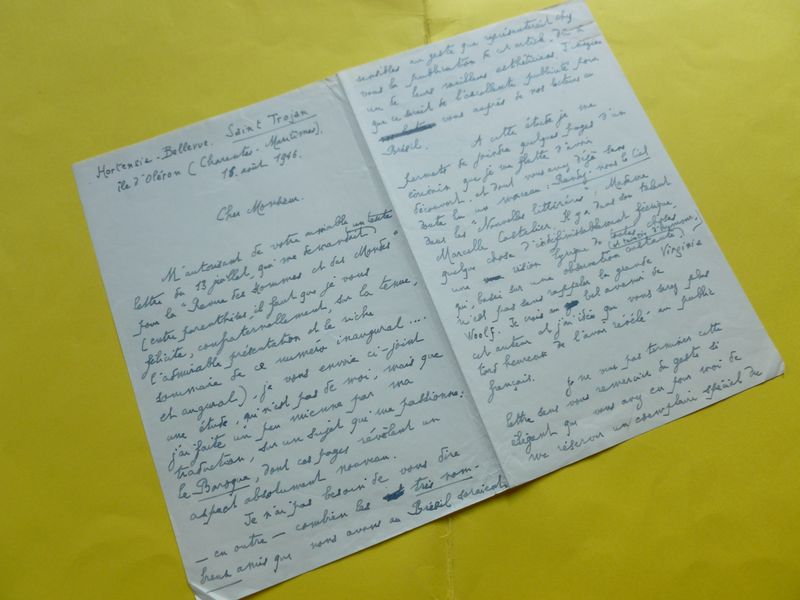 Hortensia-Bellevue. Saint Trojan
île d'Oléron (Charentes-Maritimes).
18 août 1946.
Cher Monsieur.
M'autorisant de votre aimable
lettre du 13 juillet, qui me demandait un texte
pour la "Revue des Hommes et des Mondes"
(entre parenthèses, il faut que je vous
félicite, confraternellement, sur la tenue,
l'admirable présentation et le riche
sommaire de ce numéro inaugural....
et augural), je vous envoie ci-joint
une étude, qui n'est pas de moi, mais que
j'ai faite un peu mienne par ma
traduction, sur un sujet qui me passionne:
le Baroque, dont ces pages révèlent un
aspect absolument nouveau.
Je n'ai pas besoin de vous dire
- en outre - combien les très nom-
breux amis que nous avons au Brésil seraient
sensibles au geste que représenterait chez
vous la publication de cet article, dû à
un de leurs meilleurs esthéticiens. J'
que ce serait de l'excellente publicité pour
vous auprès de nos lecteurs au
Brésil.
A cette étude je me
permets de joindre quelques pages d'un
écrivain que je me flatte d'avoir
découvert, et dont vous avez déjà sans
doute lu un morceau: nous le Ciel
dans les Nouvelles littéraires: Madame
Marcelle. Il y a dans son talent
quelque chose d'indéfinissablement féerique,
une vision lyrique de toutes choses
(et remplie d'humour)
qui, basée sur une observation constante,
n'est pas sans rappeler la grande Virginia
Woolf. Je crois au bel avenir de
cet auteur et j'ai idée que vous serez plus
tard heureux de l'avoir révélé au public
français.
Je ne veux pas terminer cette
lettre sans vous remercier du geste si
élégant que vous avez eu pour moi de
me réserver un exemplaire spécial de